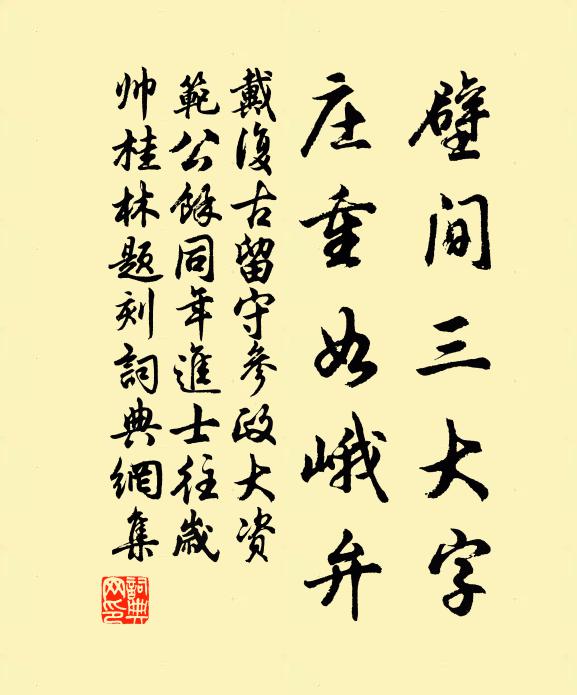 壁间三大字
庄重如峨弁
戴復古留守參政大资
範公餘同年進士往歲
帅桂林题刻詞典網集
詞典網印